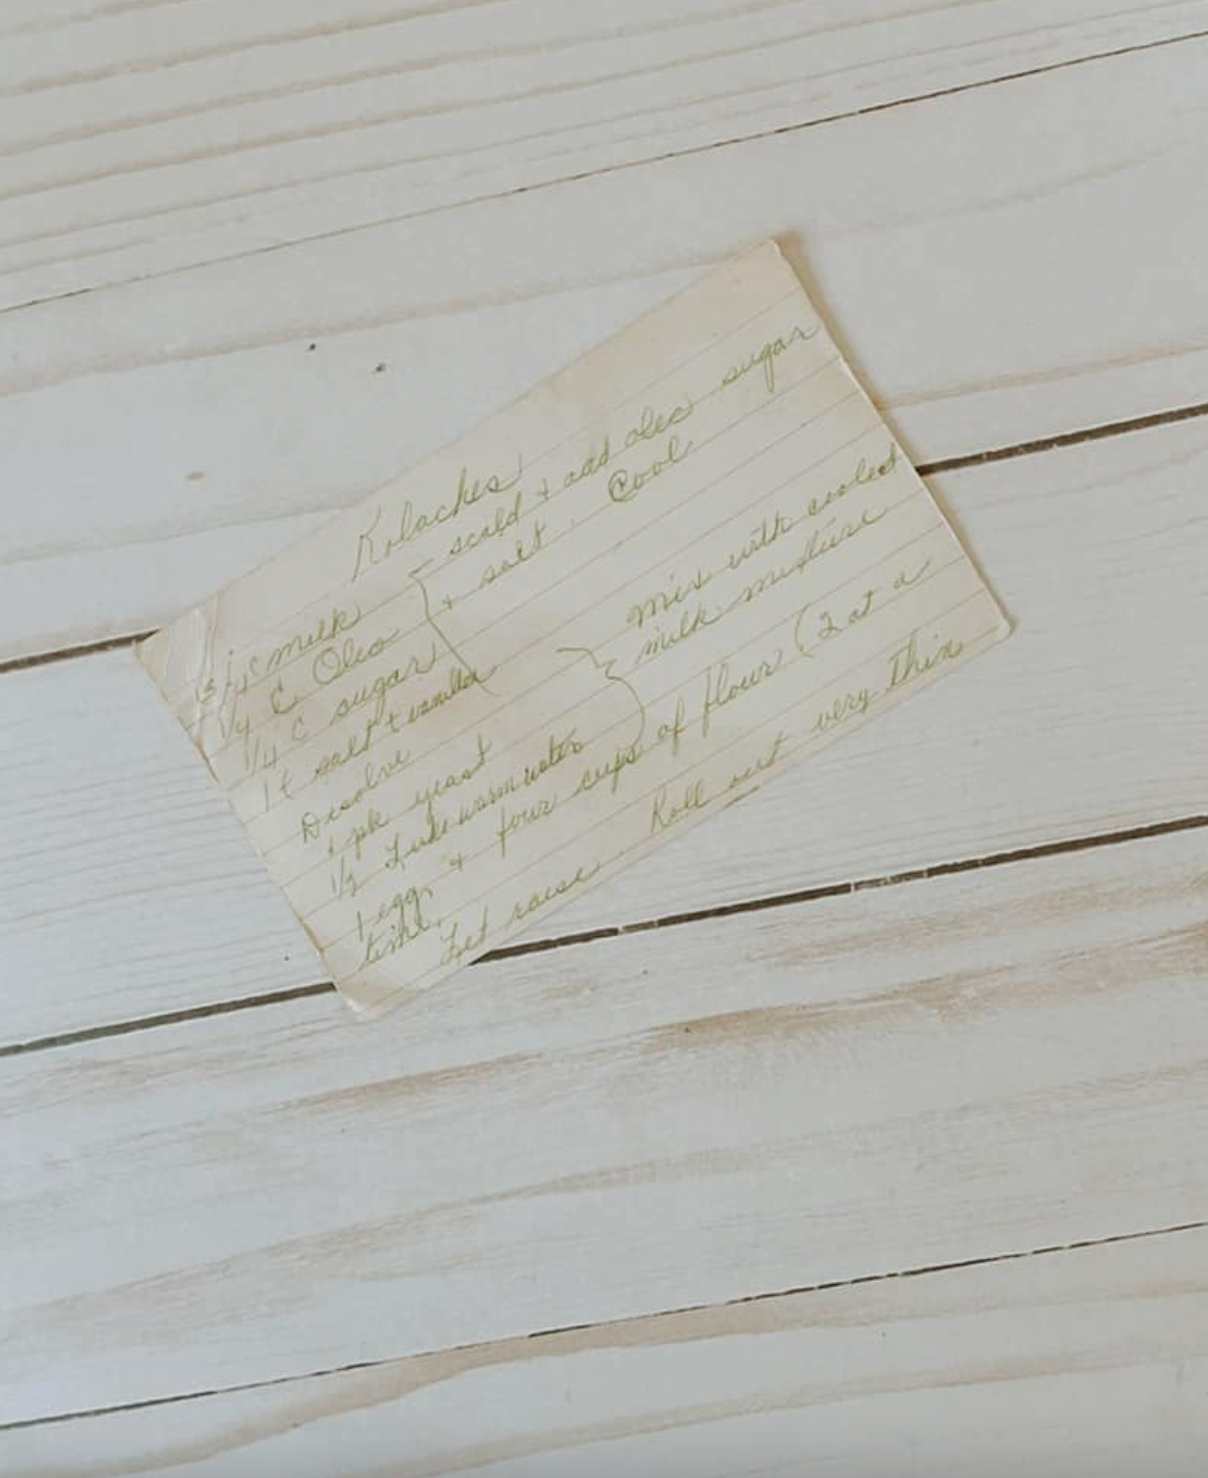 Kolaches
c milk } - scald + add oleo sugar
1/4 C Oleo + salt. Cool
1/4 C sugar
1 t salt + vanilla
Disolve
1 pk yeast } Mix with cooled
1/2 Luke warm water milk mixture
1 egg, + four cups of flour (2 at a
time. Let raise Roll out very thin